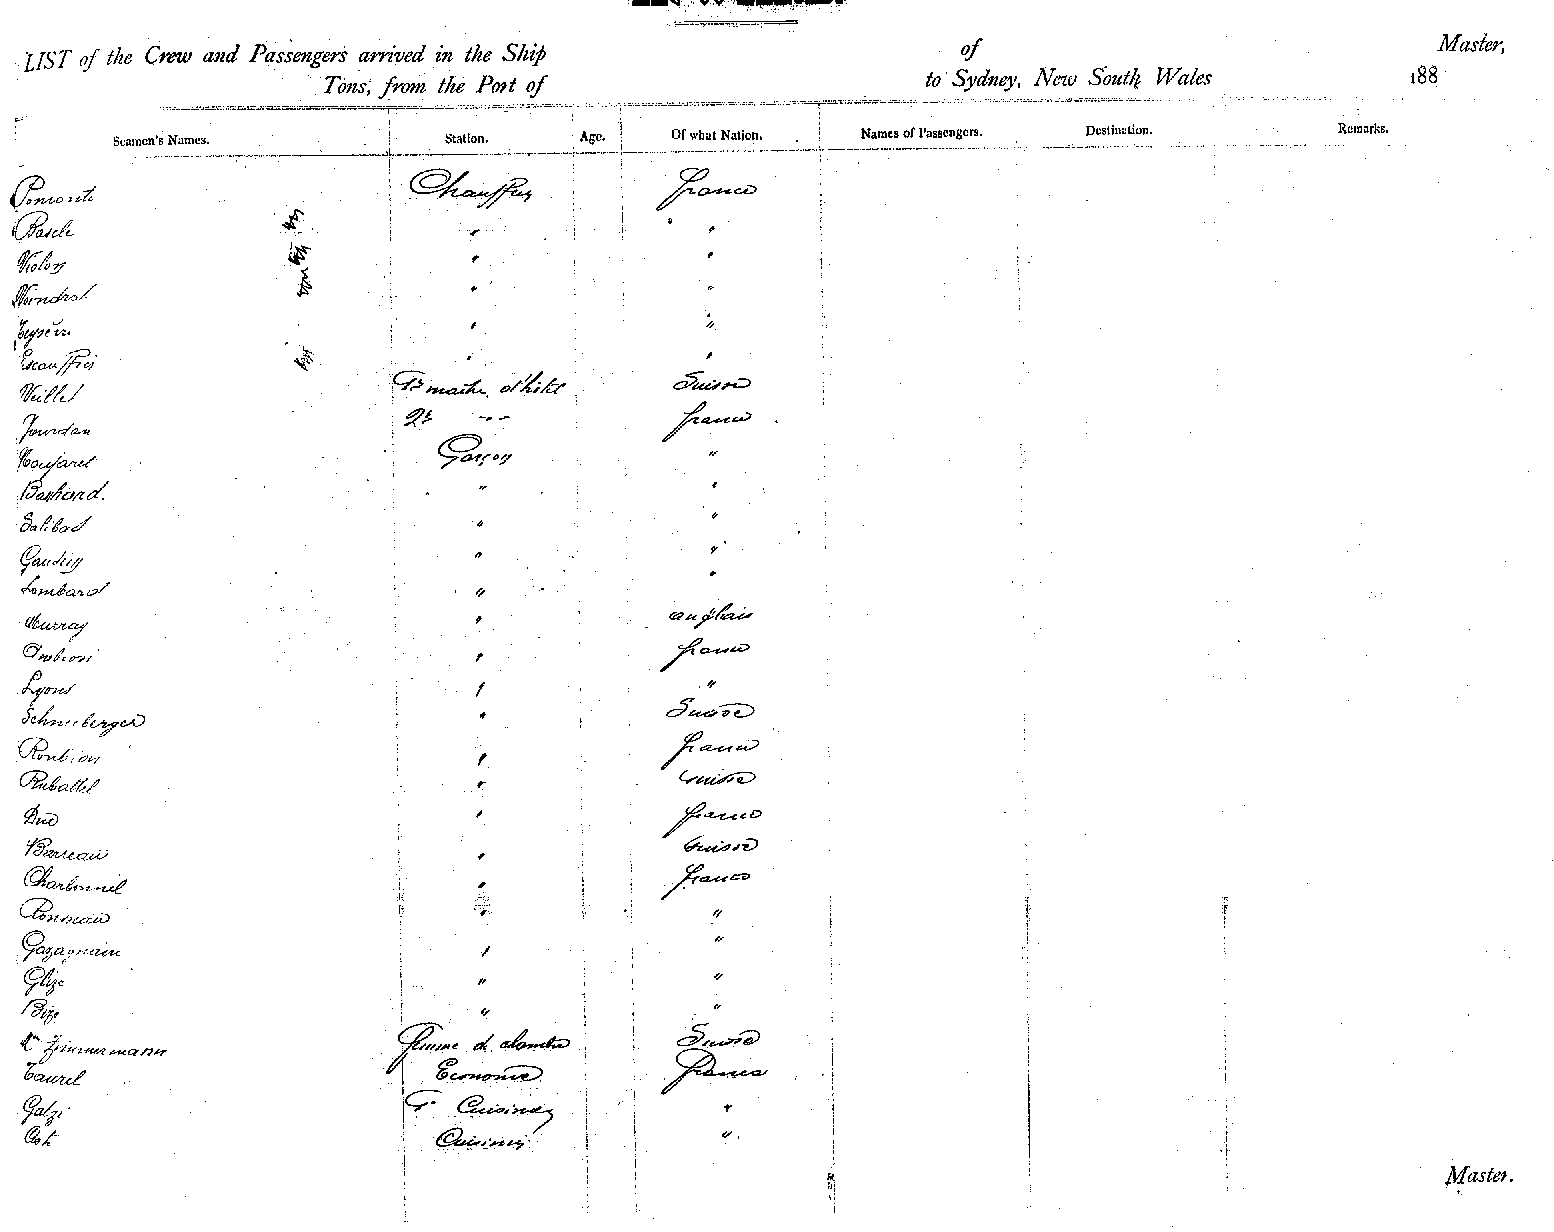 LIST of the Crew and Passengers arrived in the Ship of Master,
Tons, from the Port of to Sydney, New South Wales 188
Seamen's Names. Station. Age. Of what Nation. Names of Passengers. Destination. Remarks.
Chauffeur france
Basile " "
Violon " "
" "
" "
Escauffier " "
Veillet 1er maitre d'hôtel Suisse
Jourdan 2e " " france
Garçon "
" "
Salibat " "
Gaudin " "
Lombard " "
Murray " anglais
Ambrosi " france
Lyons " "
Schneeberger " Suisse
Roubion " france
Rubattel " suisse
Duc " france
Barreau " suisse
Charbonnel " france
Ponseau " "
Gazagnaire " "
Glize " "
Bize " "
Zimmermann femme de chambre Suisse
Taurel Econome france
Galzi 1er Cuisinier "
Cuisinier "
Master.